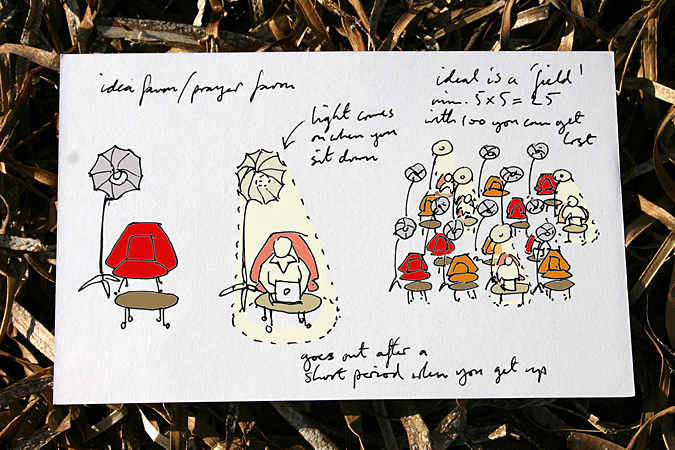 idea farm/prayer farm
light comes
on when you
sit down
ideal is a 'field'
min. 5x5 = 25
with 100 you can get
lost
goes out after a
short period when you get up